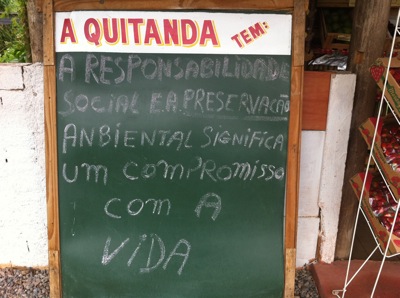 A QUITANDA TEM:
A RESPONSABILIDADE
SOCIAL E A PRESERVAÇÃO
ANBIENTAL SIGNIFICA
UM COMPROMISSO
COM A
VIDA